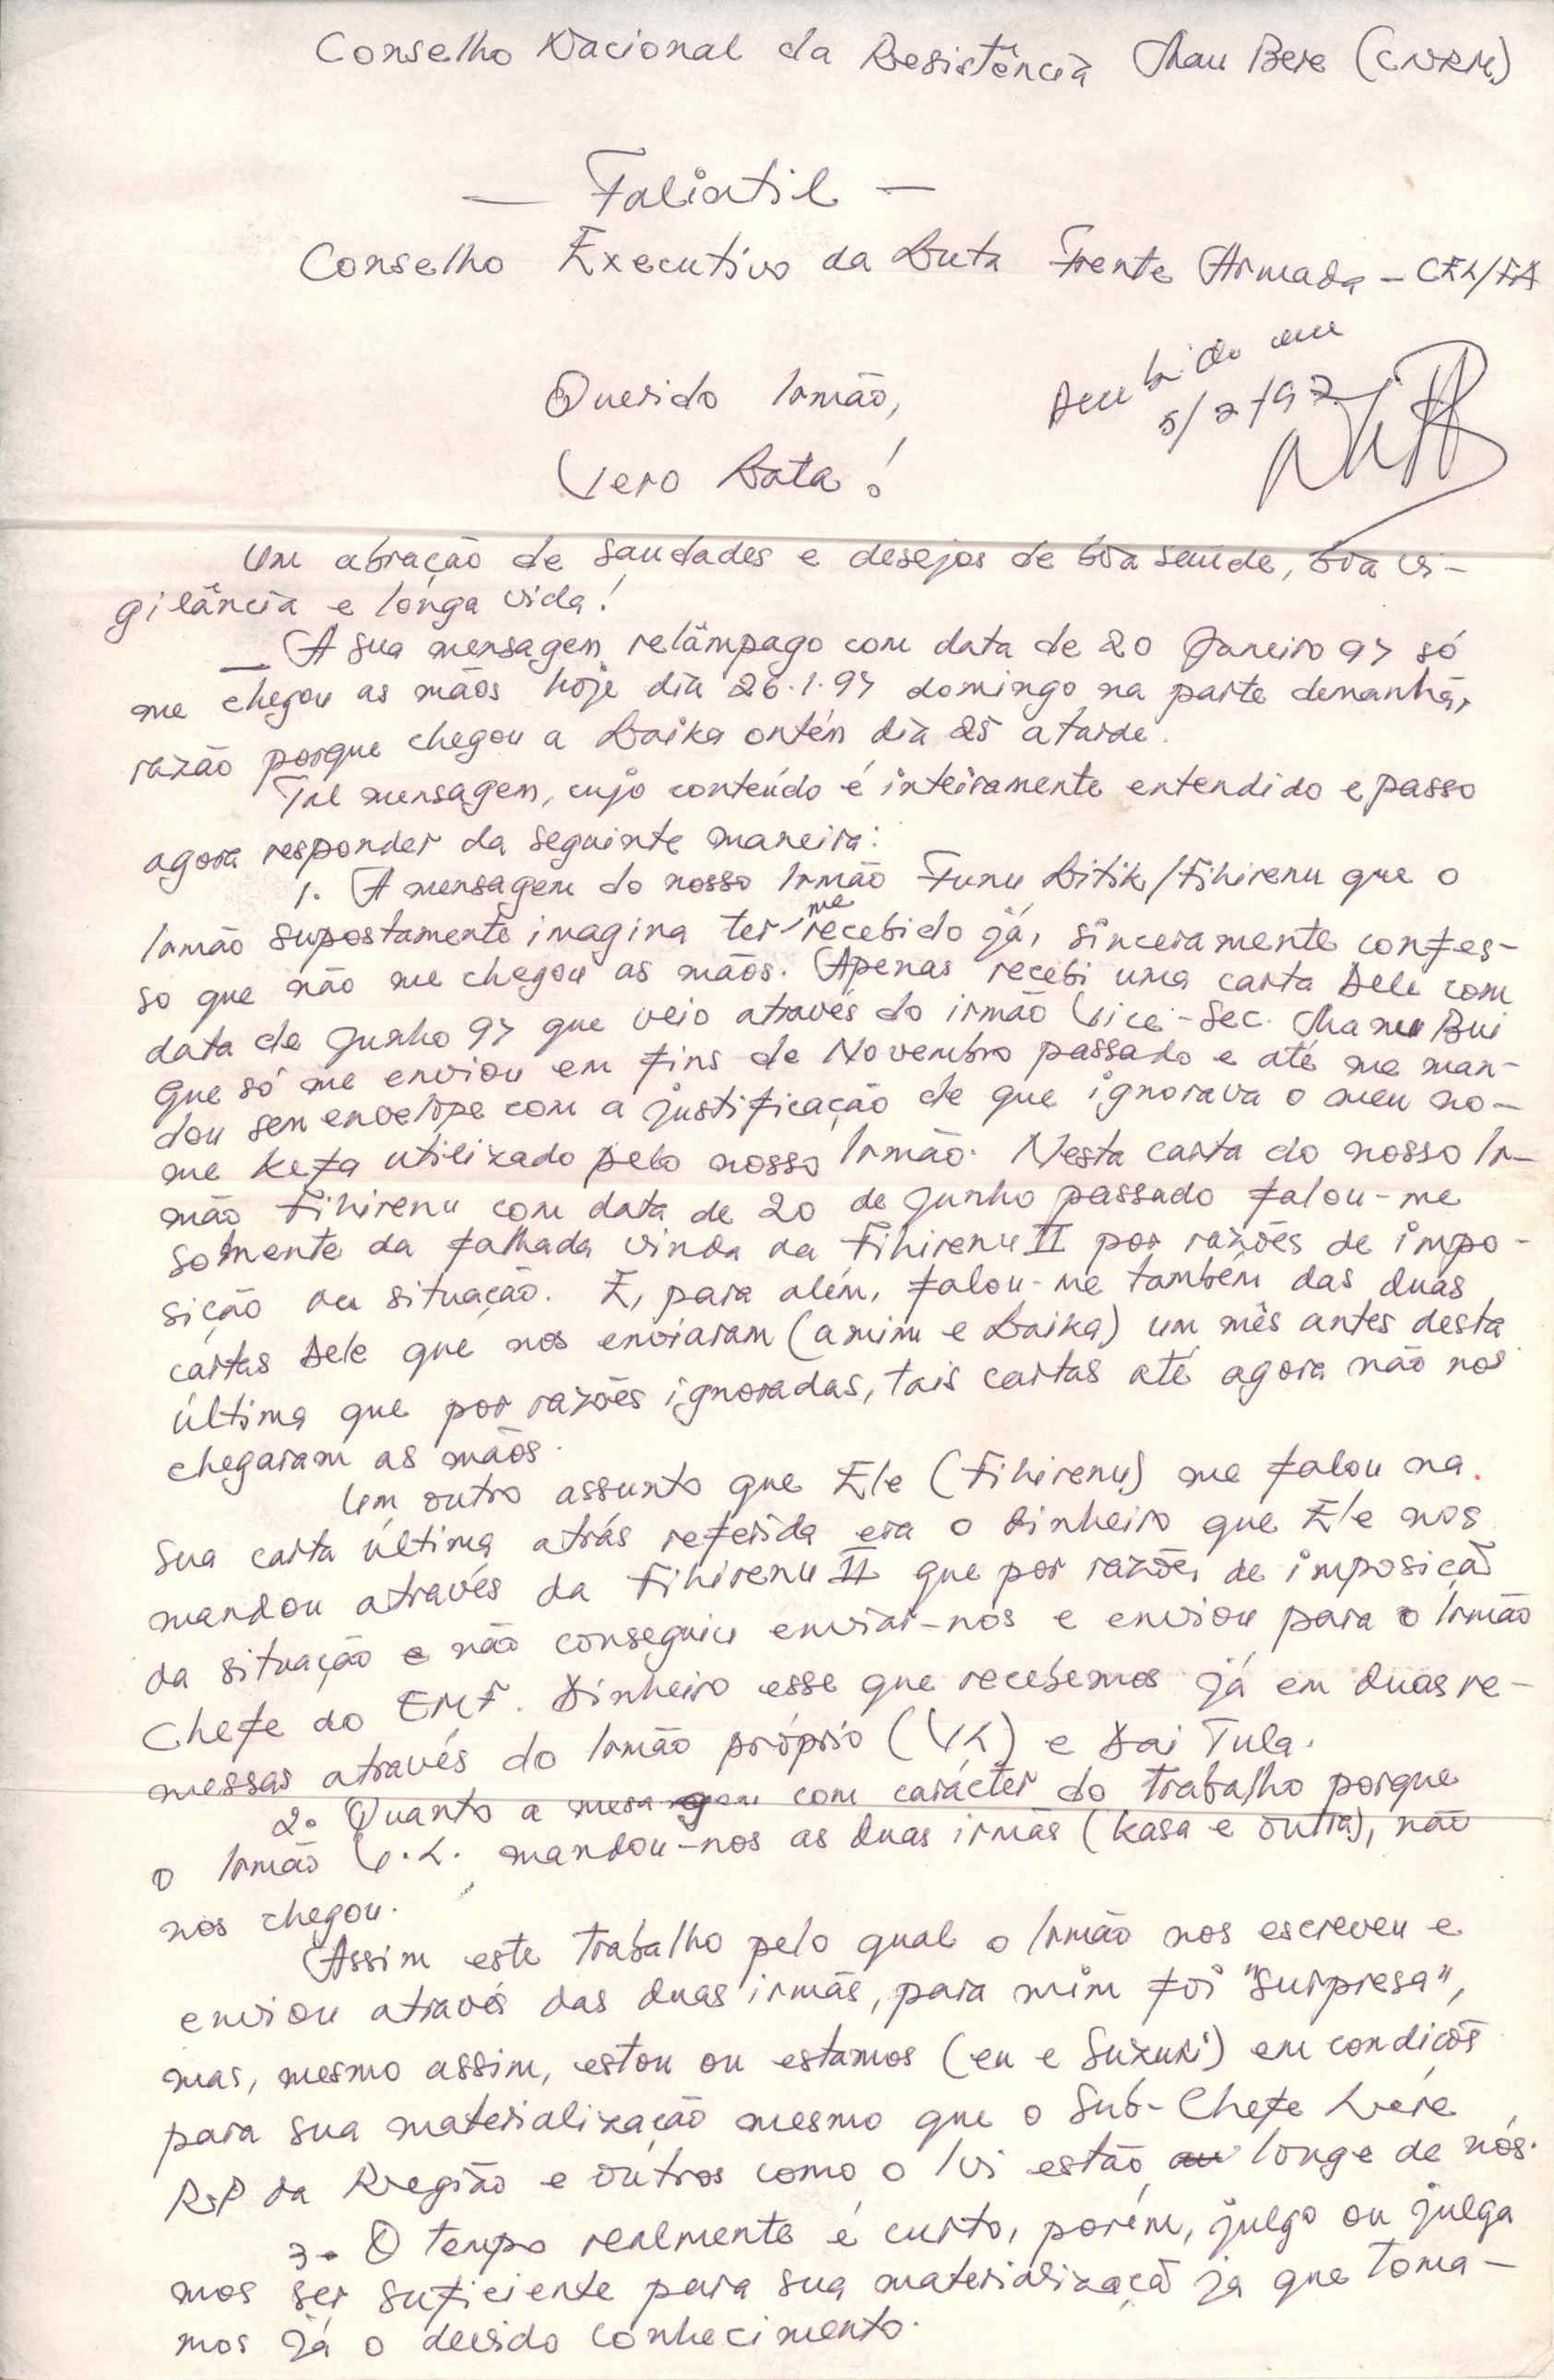 Conselho Nacional da Resistência Mau Bere (CNRM)
— Falintil —
Conselho Executivo da Luta Frente Armada - CEL/FA
Querido Irmão,
Recebido em
5/2/97
Vero Lata!
Um abração de saudades e desejos de bôa saúde, bôa vi-
gilância e longa vida!
— A sua mensagem relâmpago com data de 20 Janeiro 97 só
me chegou as mãos hoje dia 26.1.97 domingo na parte demanhã,
razão porque chegou a Laika ontém dia 25 a tarde.
Tal mensagem, cujo conteúdo é inteiramente entendido e passo
agora responder da seguinte maneira:
1. A mensagem do nosso Irmão Funu Litik/Fihirenu que o
Irmão supostamente imagina ter me recebido já, sinceramente confes-
so que não me chegou as mãos. Apenas recebi uma carta Dele com
data de Junho 97 que veio através do irmão Vice-Sec. Mau Bui
que só me enviou em fins de Novembro passado e até me man-
dou sem envelope com a justificação de que ignorava o meu no-
me Kefa utilizado pelo nosso Irmão. Nesta carta do nosso Ir-
mão Fihirenu com data de 20 de Junho passado falou-me
somente da falhada vinda da Fihirenu II por razões de impo-
sição da situação. E, para além, falou-me também das duas
cartas Dele que nos enviaram (a mim e Laika) um mês antes desta
última que por razões ignoradas, tais cartas até agora não nos
chegaram as mãos.
Um outro assunto que Ele (Fihirenu) me falou na
sua carta última atrás referida era o dinheiro que Ele nos
mandou através da Fihirenu II que por razões de imposiçã
da situação e não conseguiu enviar-nos e enviou para o Irmão
Chefe do EMF. Dinheiro esse que recebemos já em duas re-
messas através do Irmão próprio (VL) e Lai Tula.
2. Quanto a mensagem com carácter do trabalho porque
o Irmão V.L. mandou-nos as duas irmãs (Kasa e outra), não
nos chegou.
Assim este trabalho pelo qual o Irmão nos escreveu e
enviou através das duas irmãs, para mim foi "surpresa",
mas, mesmo assim, estou ou estamos (eu e Suzuki) em condiçõs
para sua materialização mesmo que o Sub-Chefe Lere
R.P da Região e outros como o Ivi estão longe de nós.
3. O tempo realmente é curto, porém, julgo ou julga
mos ser suficiente para sua materializaçã ja que toma-
mos já o devido conhecimento.